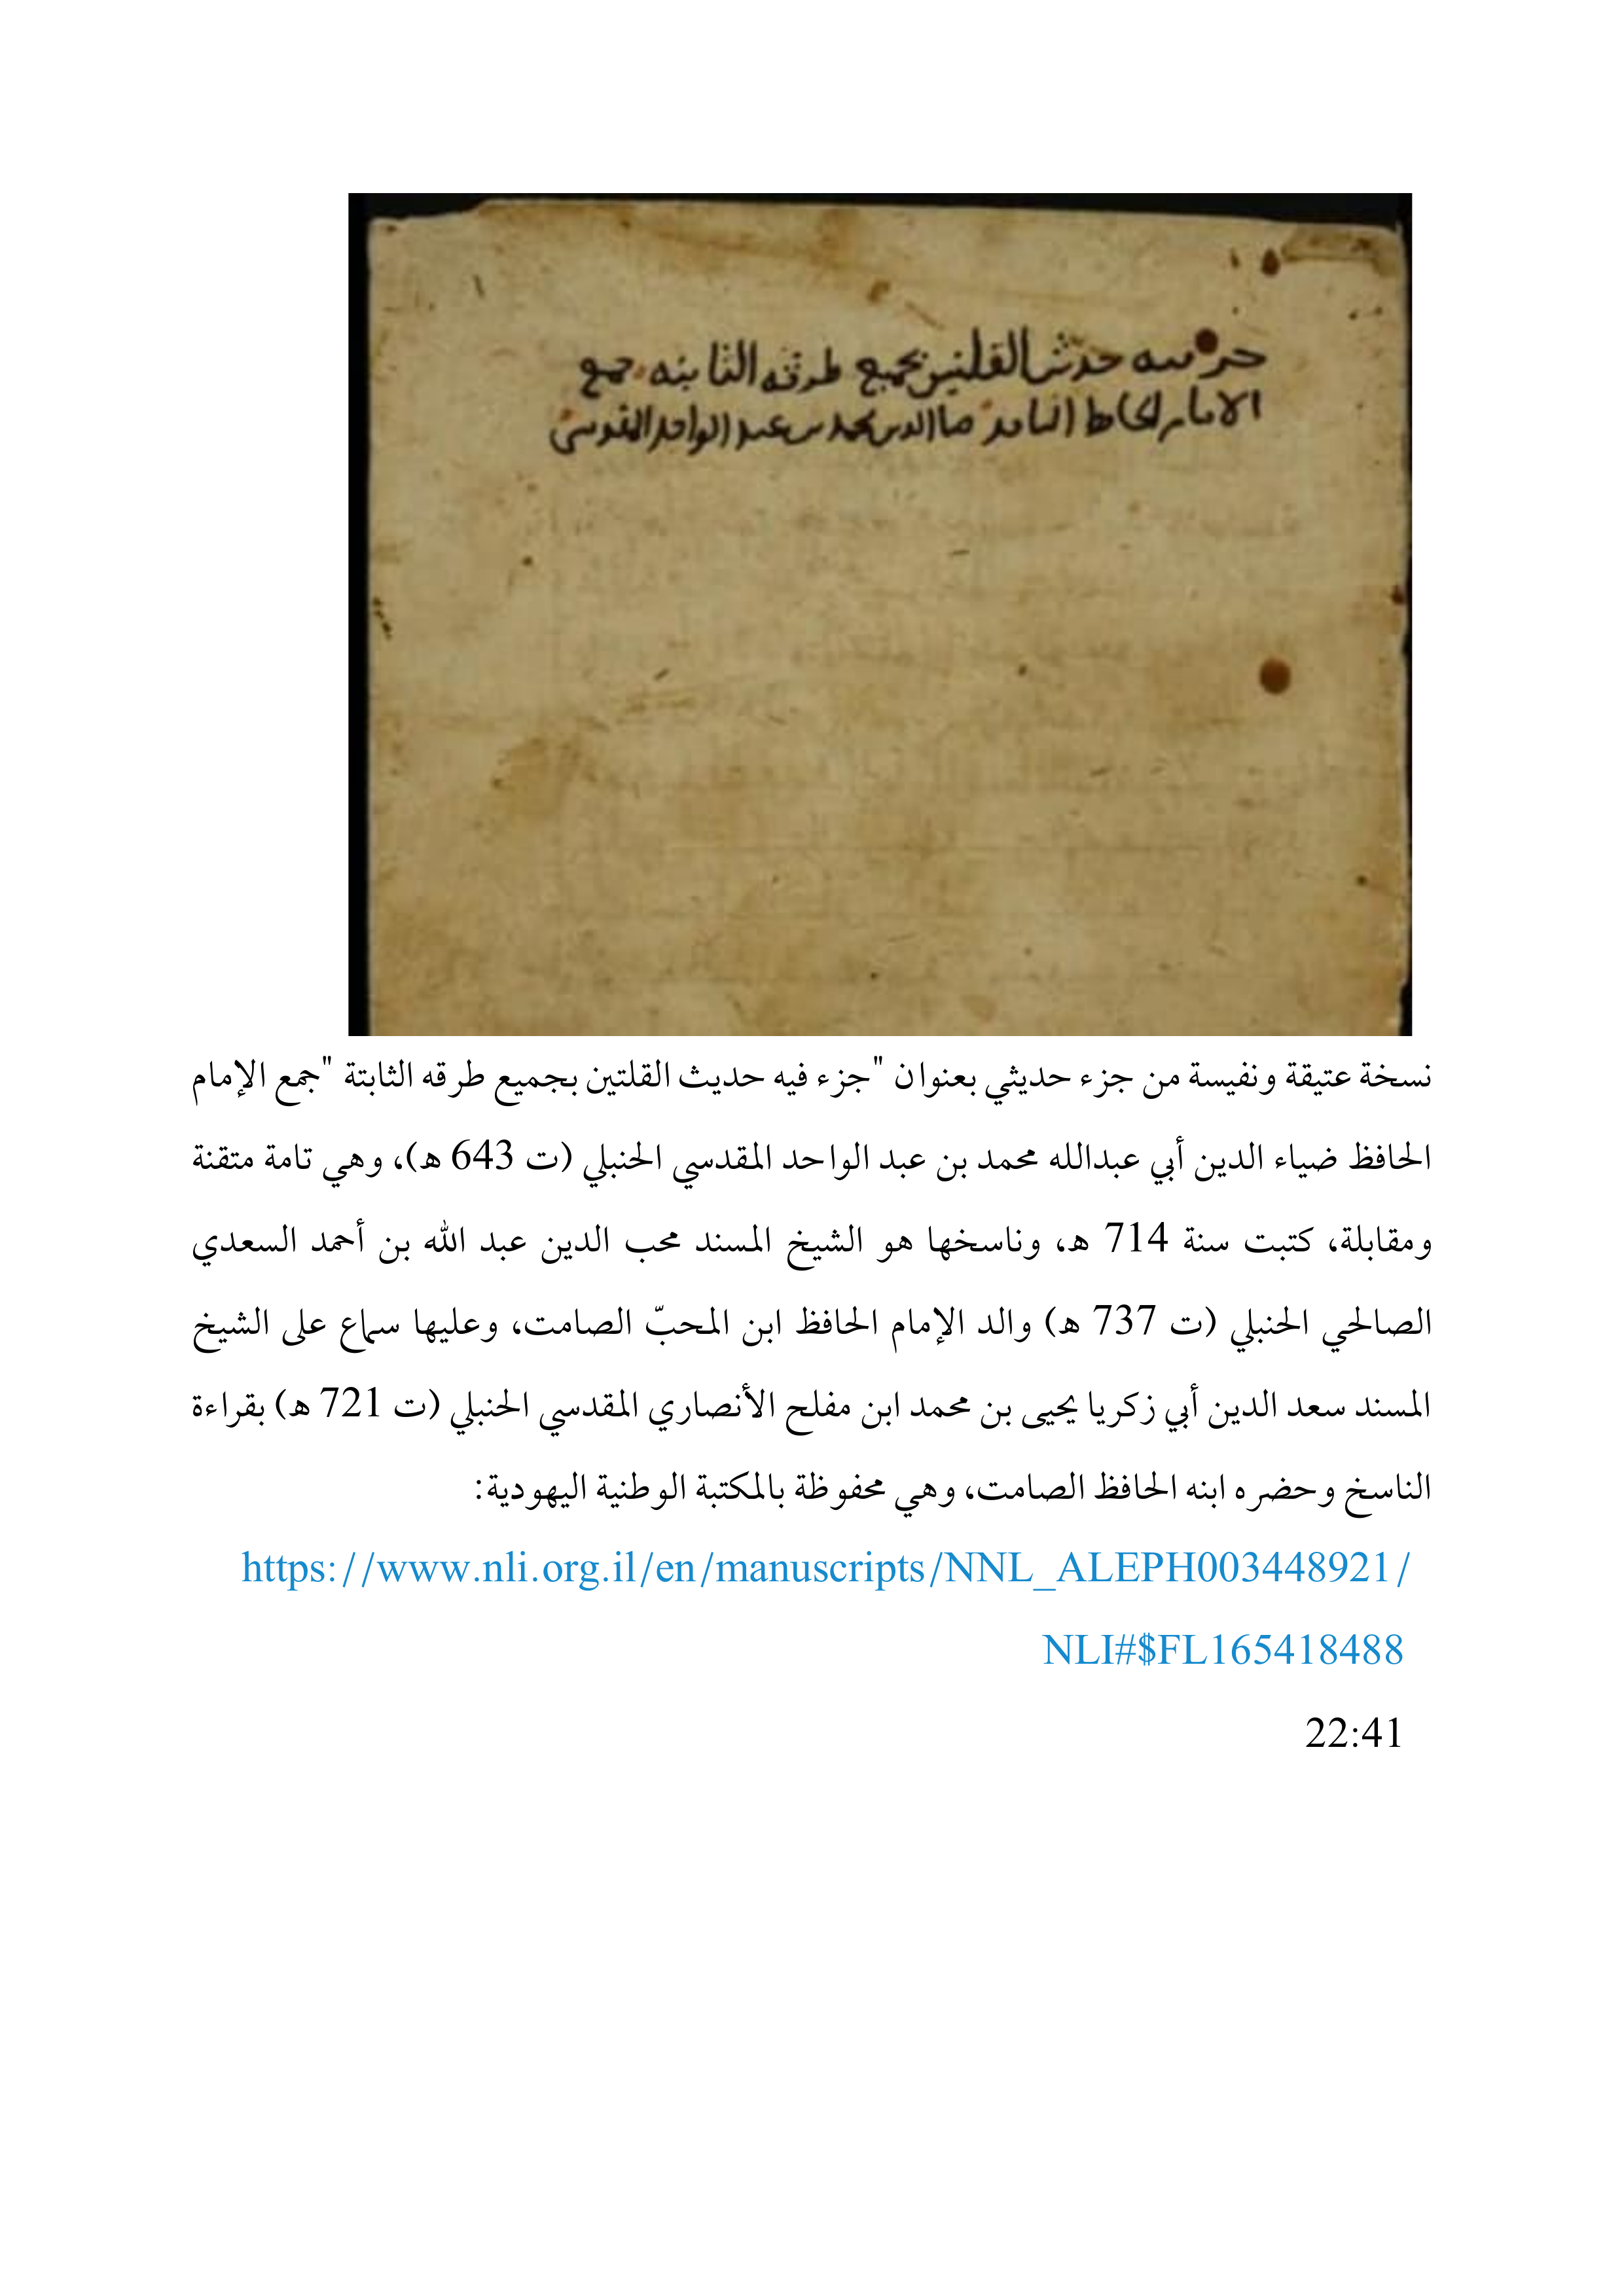 جزء فيه حديث القلتين بجميع طرقه الثابتة جمع
الامام الحافظ الناقد ضيا الدين محمد بن عبد الواحد المقدسي
نسخة عتيقة ونفيسة من جزء حديثي بعنوان "جزء فيه حديث القلتين بجميع طرقه الثابتة "جمع الإمام
الحافظ ضياء الدين أبي عبدالله محمد بن عبد الواحد المقدسي الحنبلي (ت 643 ه)، وهي تامة متقنة
ومقابلة، كتبت سنة 714 ه، وناسخها هو الشيخ المسند محب الدين عبد الله بن أحمد السعدي
الصالحي الحنبلي (ت 737 ه) والد الإمام الحافظ ابن المحبّ الصامت، وعليها سماع على الشيخ
المسند سعد الدين أبي زكريا يحيى بن محمد ابن مفلح الأنصاري المقدسي الحنبلي (ت 721 ه) بقراءة
الناسخ وحضره ابنه الحافظ الصامت، وهي محفوظة بالمكتبة الوطنية اليهودية:
https://www.nli.org.il/en/manuscripts/NNL_ALEPH003448921/
NLI#$FL165418488
22:41